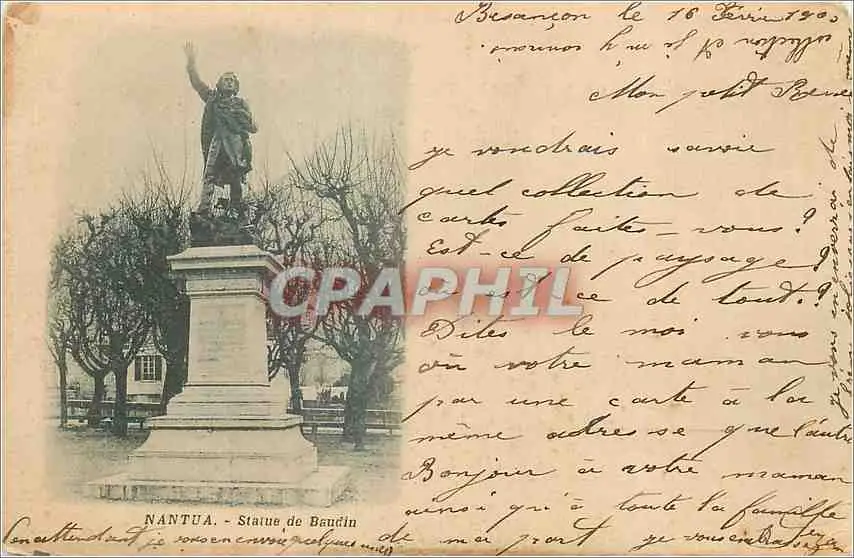 Besançon le 16 Févri 190
Mon petit René
je voudrais savoir
quel collection de
cartes faites-vous?
Est-ce de paysage?
ou est ce de tout?
Dites le moi vous
ou votre maman
par une carte à la
même adresse que l'autre
Bonjour à votre maman
ainsi qu'à toute la famille
de ma part je vous embrasse
CPARAMA
NANTUA. - Statue de Baudin
En attendant je vous en envoie quelques unes
je vous en enverrai de